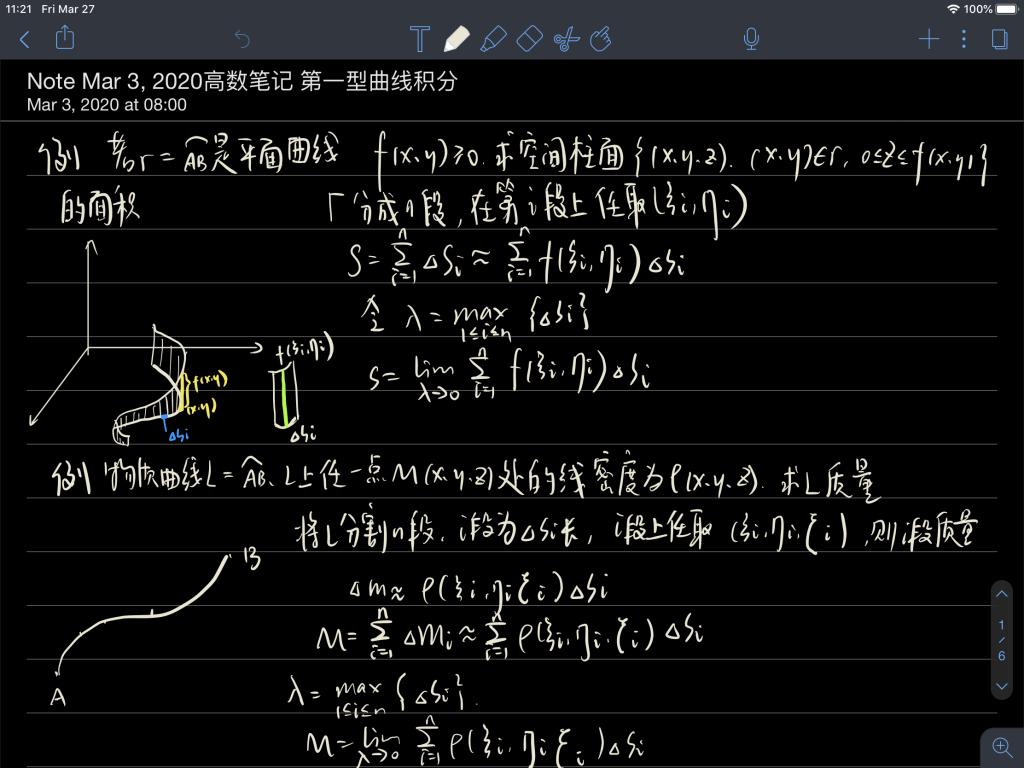 11:21 Fri Mar 27 100%
T
Note Mar 3, 2020高数笔记 第一型曲线积分
Mar 3, 2020 at 08:00
例 若Γ = AB是平面曲线 f(x,y)≥0. 求空间柱面{(x,y,z). (x,y)∈Γ, 0≤z≤f(x,y)}
的面积 Γ分成n段, 在第i段上任取(ξi,ηi)
S = Σ(i=1→n) ΔSi ≈ Σ(i=1→n) f(ξi,ηi) ΔSi
令 λ = max(1≤i≤n) {ΔSi}
S = lim(λ→0) Σ(i=1→n) f(ξi,ηi) ΔSi
f(ξi,ηi)
f(x,y)
(x,y)
ΔSi
ΔSi
例 物质曲线L = AB、L上任一点M(x,y,z)处的线密度为ρ(x,y,z). 求L质量
将L分割n段, i段为ΔSi长, i段上任取 (ξi,ηi,ζi), 则i段质量
B
Δm ≈ ρ(ξi,ηi,ζi) ΔSi
M = Σ(i=1→n) Δmi ≈ Σ(i=1→n) ρ(ξi,ηi,ζi) ΔSi
A
λ = max(1≤i≤n) {ΔSi}.
M = lim(λ→0) Σ(i=1→n) ρ(ξi,ηi,ζi) ΔSi
1
/
6